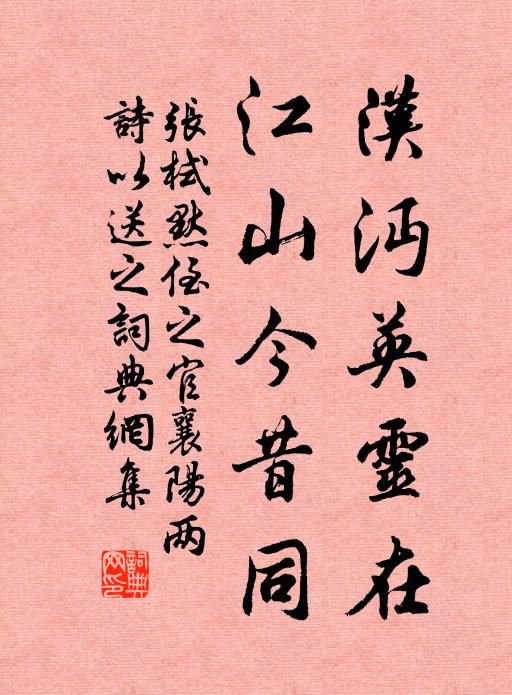 漢沔英靈在
江山今昔同
張栻默侄之官襄陽两
詩以送之詞典網集
詞典
网印